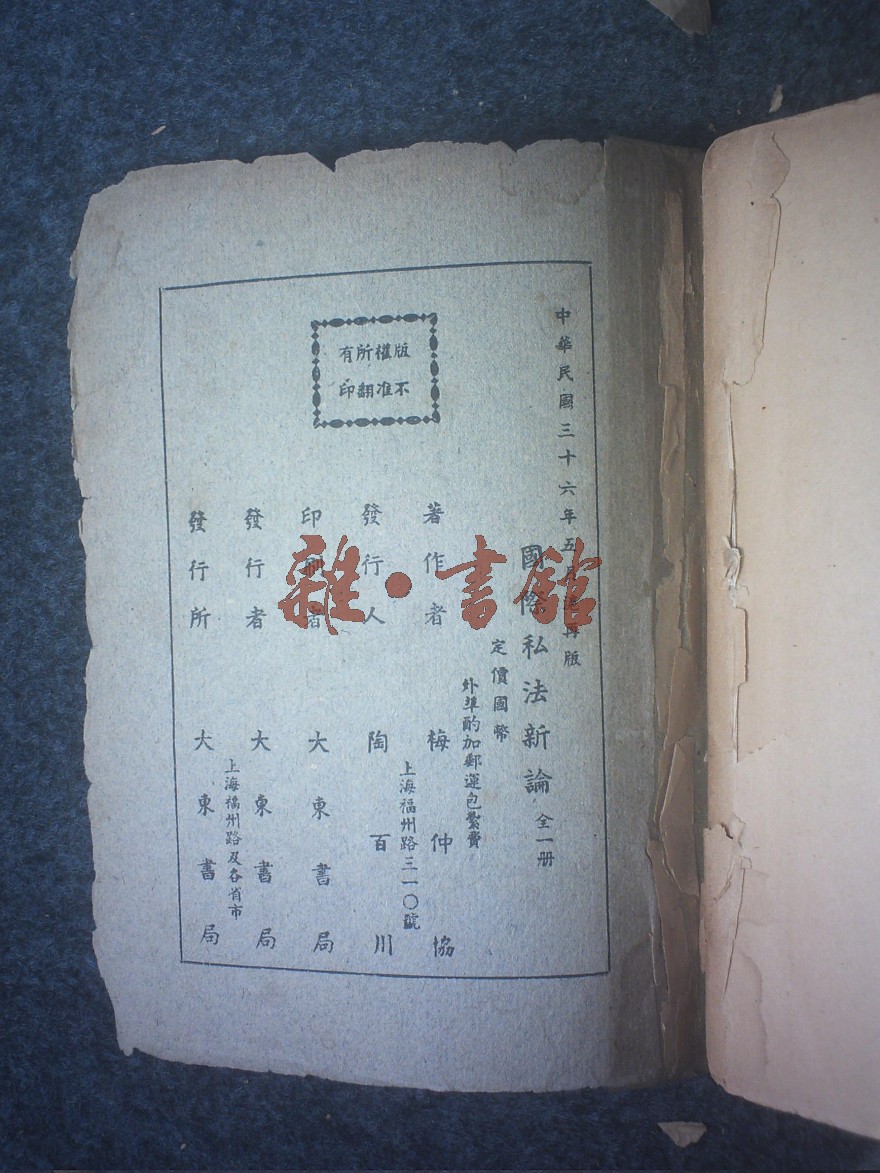 中華民國三十六年五月　再版
國際私法新論　全一册
定價國幣
外埠酌加郵運包紮費
版權所有
不准翻印
著作者　梅仲協
上海福州路三一〇號
發行人　陶百川
印刷者　大東書局
發行者　大東書局
上海福州路及各省市
發行所　大東書局
雜·書館